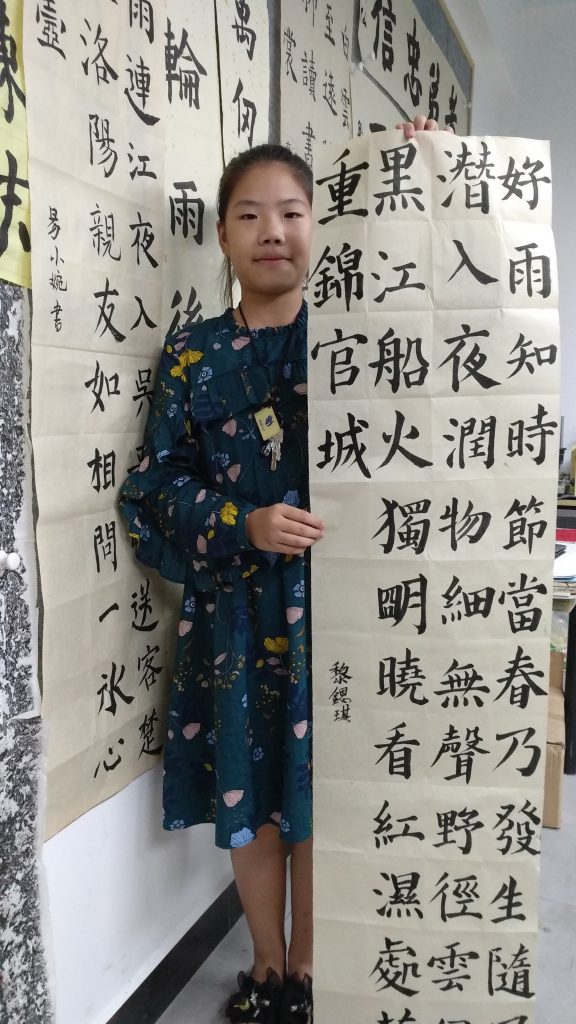 好雨知時節當春乃發生隨
潛入夜潤物細無聲野徑雲
黑江船火獨明曉看紅濕處
重錦官城
黎鍶琪
信忠弟
白雲
至遠
聊讀書
裳
萬仞
輪雨後
雨連江夜入吳
送客楚
洛陽親友如相問一氷心
壺
易小婉書